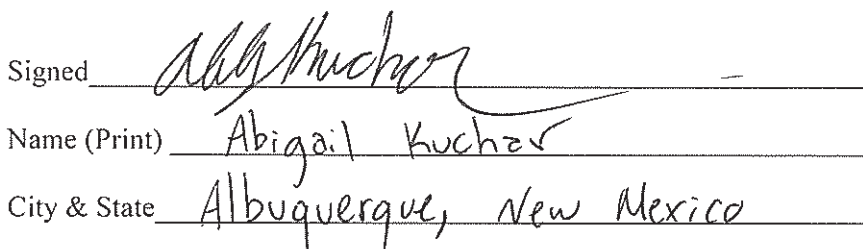 Signed Abby Kuchar
Name (Print) Abigail Kuchar
City & State Albuquerque, New Mexico